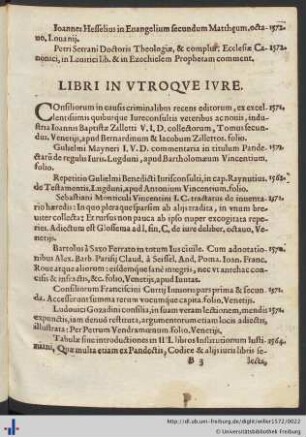 Ioannes Hesselius in Euangelium secundum Matthæum, octa- 1572.
uo, Louanij.
Petri Serrani Doctoris Theologiæ, & complut. Ecclesiæ Ca- 1572.
nonici, in Leuitici Lib. & in Ezechielem Prophetam comment.
LIBRI IN VTROQVE IVRE.
Consiliorum in causis criminalibus recens editorum, ex excel- 1571.
lentissimis quibusque Iureconsultis veteribus ac nouis, indu-
stria Ioannis Baptistæ Zilletti V. I. D. collectorum, Tomus secun-
dus. Venetijs, apud Bernardinum & Iacobum Zillettos. folio.
Gulielmi Mayneri I. V. D. commentaria in titulum Pande- 1572.
ctarū de regulis Iuris. Lugduni, apud Bartholomæum Vincentium,
folio.
Repetitio Gulielmi Benedicti Iurisconsulti, in cap. Raynutius.
de Testamentis, Lugduni, apud Antonium Vincentium. folio.
Sebastiani Monticuli Vincentini I. C. tractatus de inuenta- 1571.
rio hæredis: In quo pleraque sparsim ab alijs tradita, in vnum bre-
uiter collecta; Et rursus non pauca ab ipso nuper excogitata repe-
ries. Adiectum est Glossema ad l. fin, C, de iure deliber, octauo, Ve-
netijs.
Bartolus à Saxo Ferrato in totum Ius ciuile. Cum adnotatio-
nibus Alex. Barb. Parisij Claud, à Seissel. And, Poma. Ioan. Franc.
Rous atque aliorum: eisdemque sanè integris, nec vt antehac con-
cisis & infractis, &c. folio, Venetijs, apud Iuntas.
Consiliorum Francischini Curtij Iunioris pars prima & secun 1571.
da. Accesserunt summæ rerum vocumque capita. folio, Venetijs.
Ludouici Gozadini consilia, in suam veram lectionem, mendis 1571.
expunctis, iam denuò restituta, argumentorum etiam locis adiectis,
illustrata: Per Petrum Vendramænum. folio. Venetijs.
Tabulæ siue introductiones in IIII. libros Institutionum Iusti- 1564.
niani, Quæ multa etiam ex Pandectis, Codice & alijs iuris libris se-
B 3 lecta,
http://dl.ub.uni-freiburg.de/diglit/willer1572/0022
© Universitätsbibliothek Freiburg